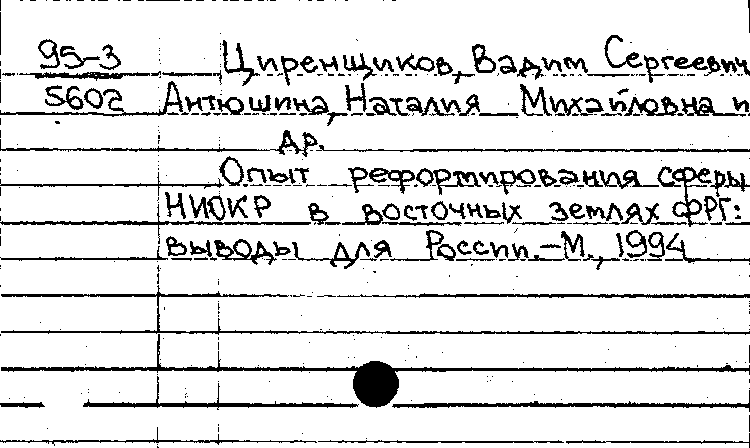 95-3 Циренщиков, Вадим Сергеевич
5602 Антюшина, Наталия Михайловна и
др.
Опыт реформирования сферы
НИОКР в восточных землях ФРГ:
выводы для России.-М., 1994